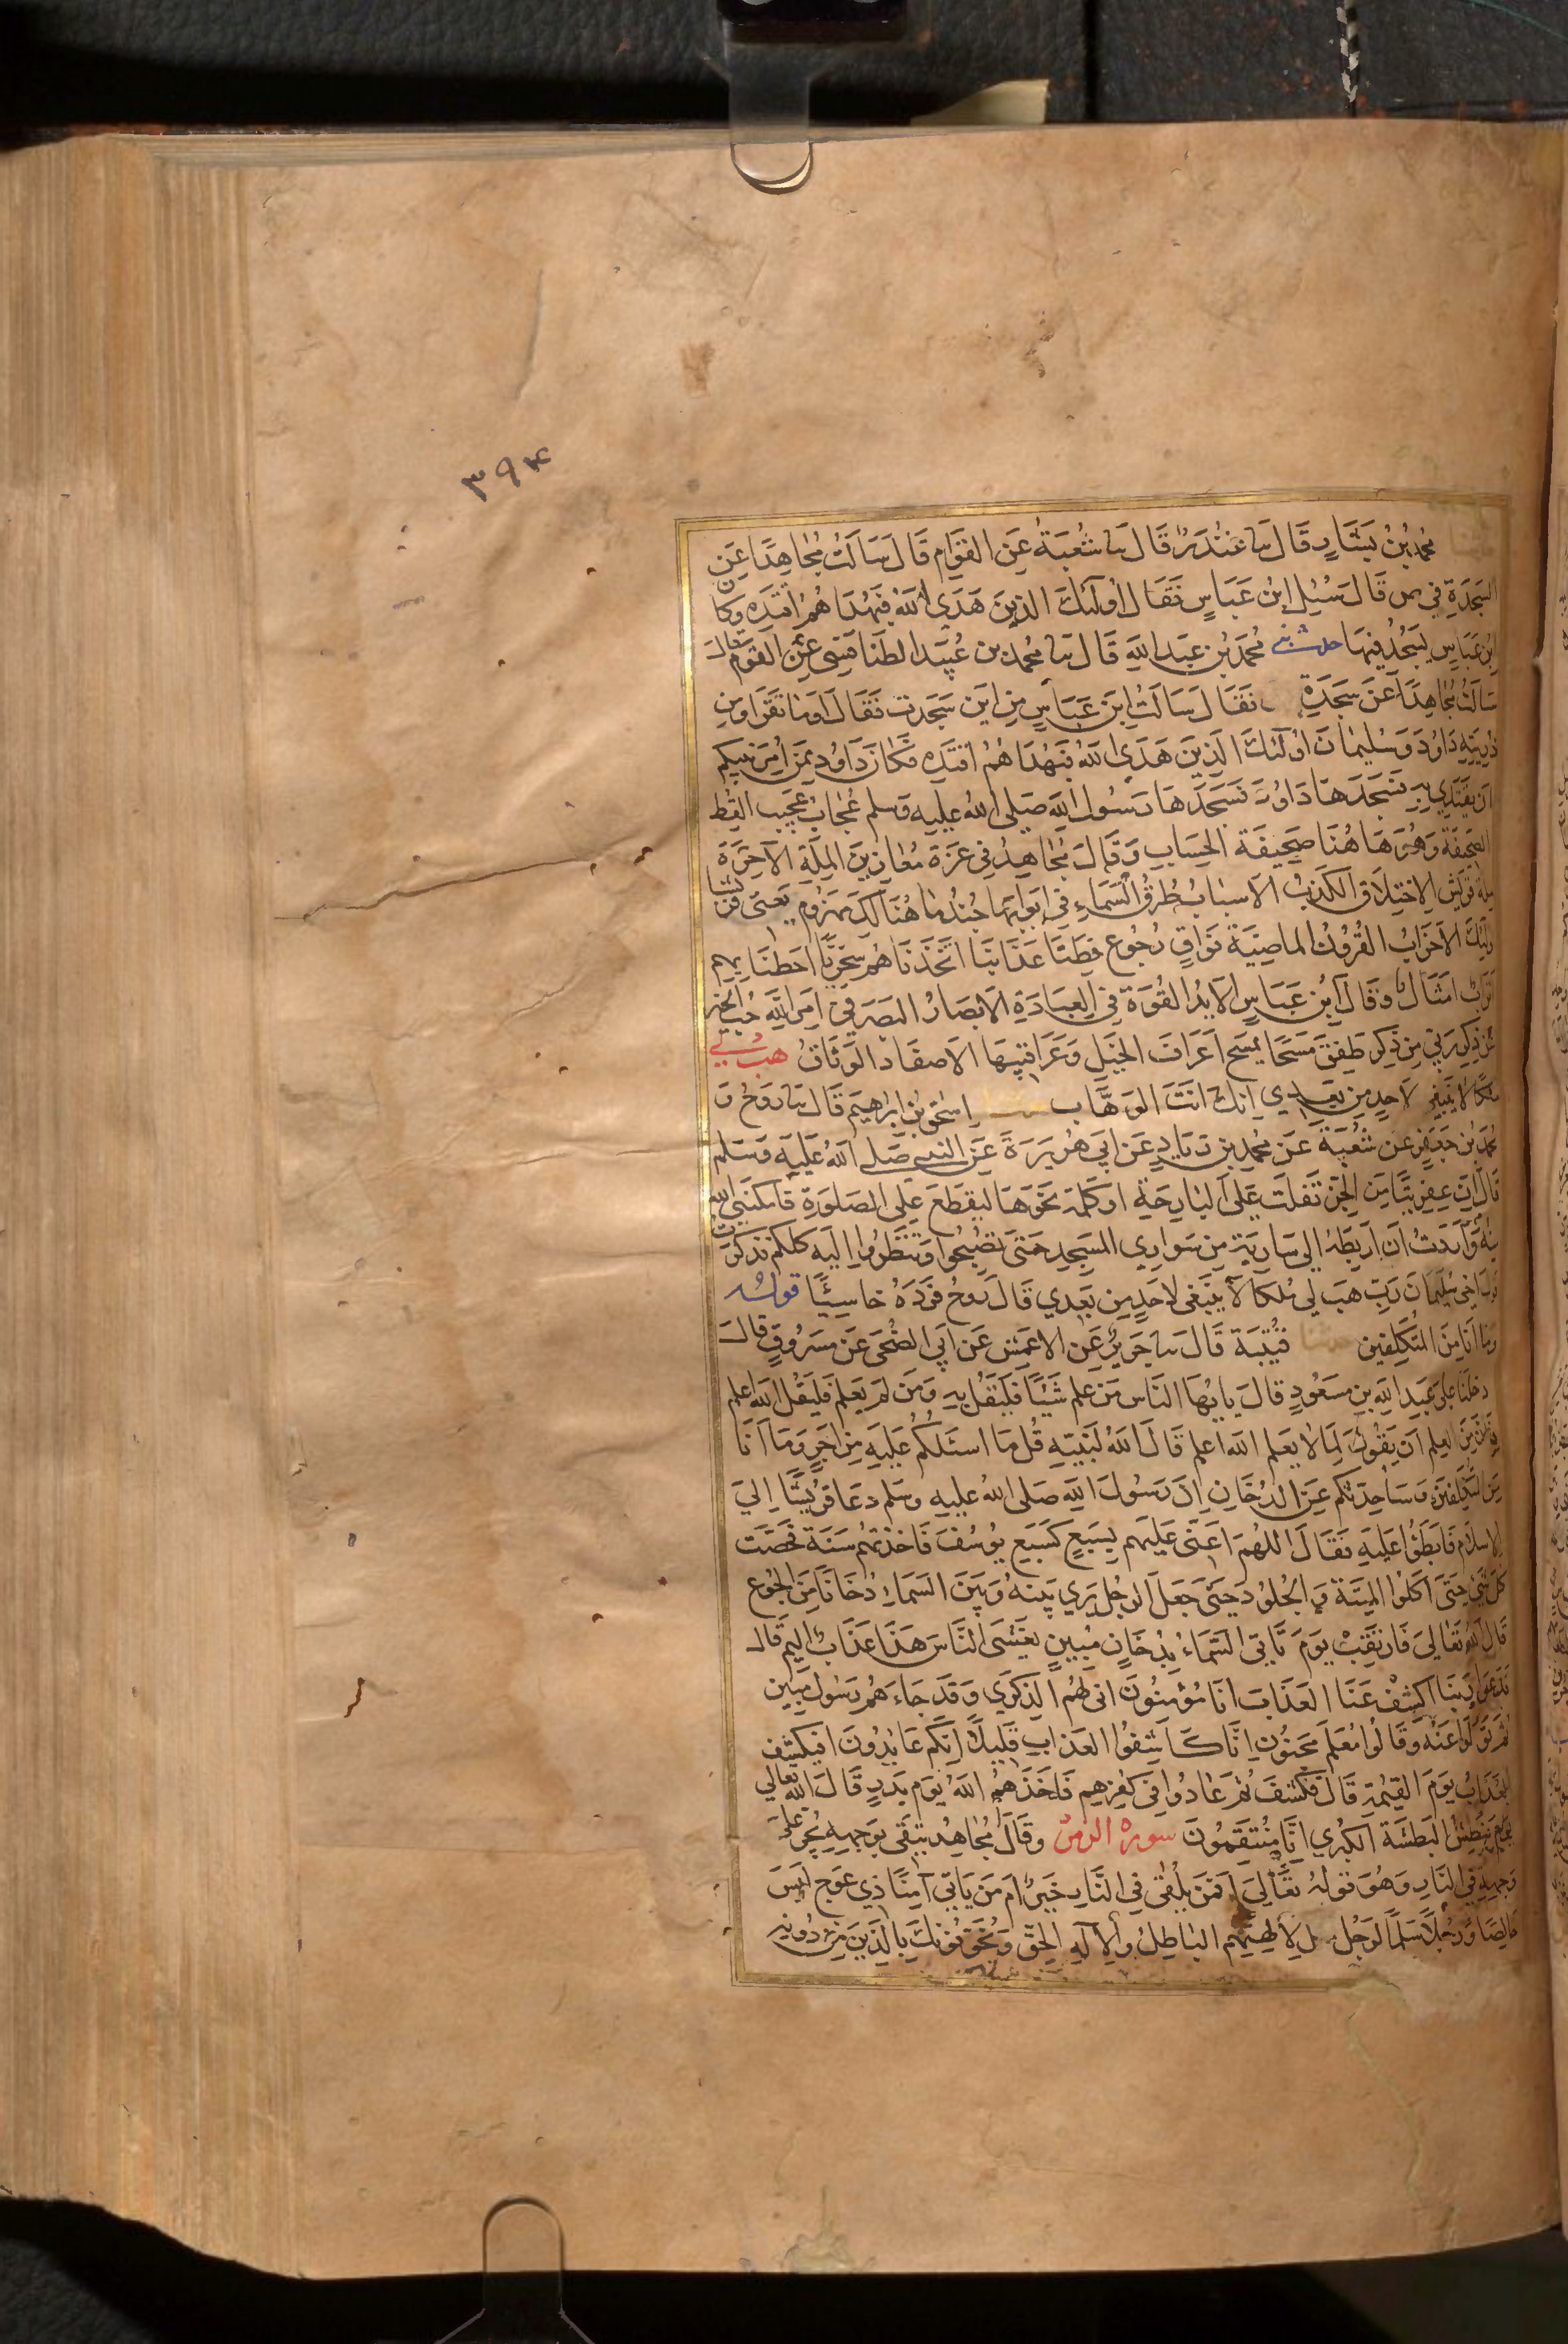 ٣٩٤
محمد بن بشار قال نا غندر قال نا شعبة عن العوام قال سالت مجاهدا عن
السجدة في ص قال سئل ابن عباس فقال اولئك الذين هدى الله فبهداهم اقتده وكان
ابن عباس يسجد فيها حدثني محمد بن عبد الله قال نا محمد بن عبيد الطنافسي عن العوام قال
سالت مجاهدا عن سجدة فقال سالت ابن عباس من اين سجدت فقال اوما تقرا ومن
ذريته داود وسليمان اولئك الذين هدى الله فبهداهم اقتده فكان داود ممن امر نبيكم
ان يقتدي به فسجدها داود فسجدها رسول الله صلى الله عليه وسلم عجاب عجيب القط
الصحيفة وهو هاهنا صحيفة الحساب وقال مجاهد في عزة معازين الملة الآخرة
ملة قريش الاختلاق الكذب الاسباب طرق السماء في ابوابها جند ما هنالك مهزوم يعني قريشا
اولئك الاحزاب القرون الماضية فواق رجوع قطنا عذابنا اتخذناهم سخريا احطنا بهم
اتراب امثال وقال ابن عباس الايد القوة في العبادة الابصار البصر في امر الله حب الخير
عن ذكر ربي من ذكر طفق مسحا يمسح اعراف الخيل وعراقيبها الاصفاد الوثاق هب لي
ملكا لا ينبغي لاحد من بعدي انك انت الوهاب اسحق بن ابراهيم قال نا روح و
محمد بن جعفر عن شعبة عن محمد بن زياد عن ابي هريرة عن النبي صلى الله عليه وسلم
قال ان عفريتا من الجن تفلت على البارحة او كلمة نحوها ليقطع على الصلوة فامكنني الله
منه واردت ان اربطه الى سارية من سواري المسجد حتى تصبحوا وتنظروا اليه كلكم فذكرت
قول اخي سليمان رب هب لي ملكا لا ينبغي لاحد من بعدي قال روح فرده خاسئا قوله
وما انا من المتكلفين قتيبة قال نا جرير عن الاعمش عن ابي الضحى عن مسروق قال
دخلنا على عبد الله بن مسعود قال يا يها الناس من علم شيئا فليقل به ومن لم يعلم فليقل الله اعلم
فان من العلم ان يقول لما لا يعلم الله اعلم قال الله لنبيه قل ما اسئلكم عليه من اجر وما انا
من المتكلفين وساحدثكم عن الدخان ان رسول الله صلى الله عليه وسلم دعا قريشا الى
الاسلام فابطؤا عليه فقال اللهم اعني عليهم بسبع كسبع يوسف فاخذتهم سنة فحصت
كل شيء حتى اكلوا الميتة والجلود حتى جعل الرجل يرى بينه وبين السماء دخانا من الجوع
قال الله تعالى فارتقب يوم تاتي السماء بدخان مبين يغشى الناس هذا عذاب اليم قال
فدعوا ربنا اكشف عنا العذاب انا مؤمنون انى لهم الذكرى وقد جاءهم رسول مبين
ثم تولوا عنه وقالوا معلم مجنون انا كاشفوا العذاب قليلا انكم عايدون افيكشف
العذاب يوم القيمة قال فكشف ثم عادوا في كفرهم فاخذهم الله يوم بدر قال الله تعالى
يوم نبطش البطشة الكبرى انا منتقمون سورة الزمر وقال مجاهد يتقى بوجهه يجر على
وجهه في النار وهو قوله تعالى افمن يلقى في النار خير ام من ياتي آمنا ذي عوج لبس
ورجلا سلما لرجل لالهتهم الباطل والاله الحق ويخوفونك بالذين من دونه